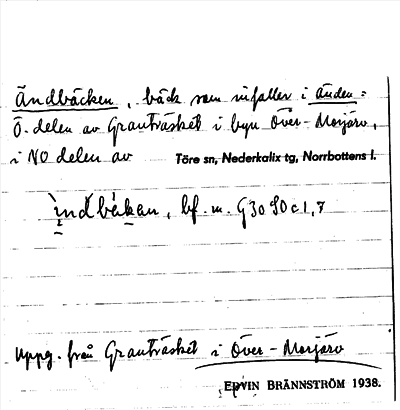 Ändbäcken, bäck som infaller i änden =
Ö. delen av Granträsket i byn Över-Morjärv,
i NO delen av Töre sn, Nederkalix tg, Norrbottens l.
bf. m. G30 SO c 1, 7
Uppg. från Granträsket i Över-Morjärv
ERVIN BRÄNNSTRÖM 1938.